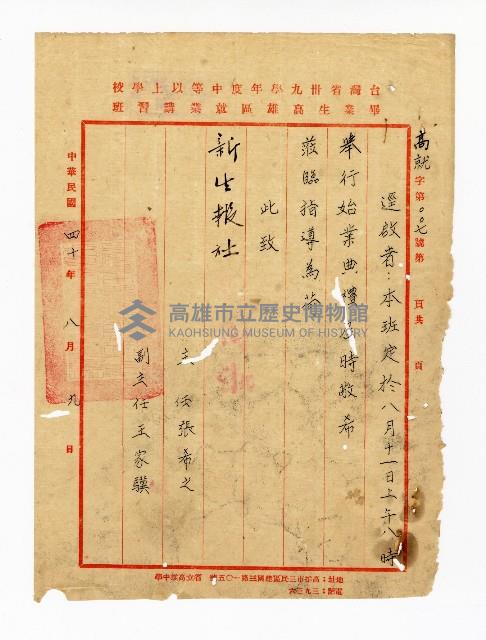 台灣省卅九學年度中等以上學校
畢業生高雄區就業講習班
高就字第００七號第 頁共 頁
逕啟者：本班定於八月十一日上午八時
舉行始業典禮 時敬希
蒞臨指導為荷
此致
新生報社
主任張希之
副主任王家驥
中華民國四十年八月九日
地址：高雄市三民區建國三路一〇五號 省立高雄中學
電話：三九三六
高雄市立歷史博物館
KAOHSIUNG MUSEUM OF HISTORY